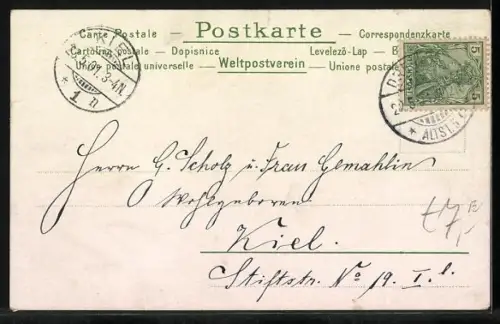 Carte Postale — Postkarte — Correspondenzkarte
Cartolina postale — Dopisnice Levelező-Lap — B
Union postale universelle — Weltpostverein — Unione postale
KIEL
1.01.3-4N.
* 1 n
* ALTST.
5 5
Herrn G. Scholz u. Frau Gemahlin
Wohlgeboren
Kiel.
Stiftstr. No 19. I.l.